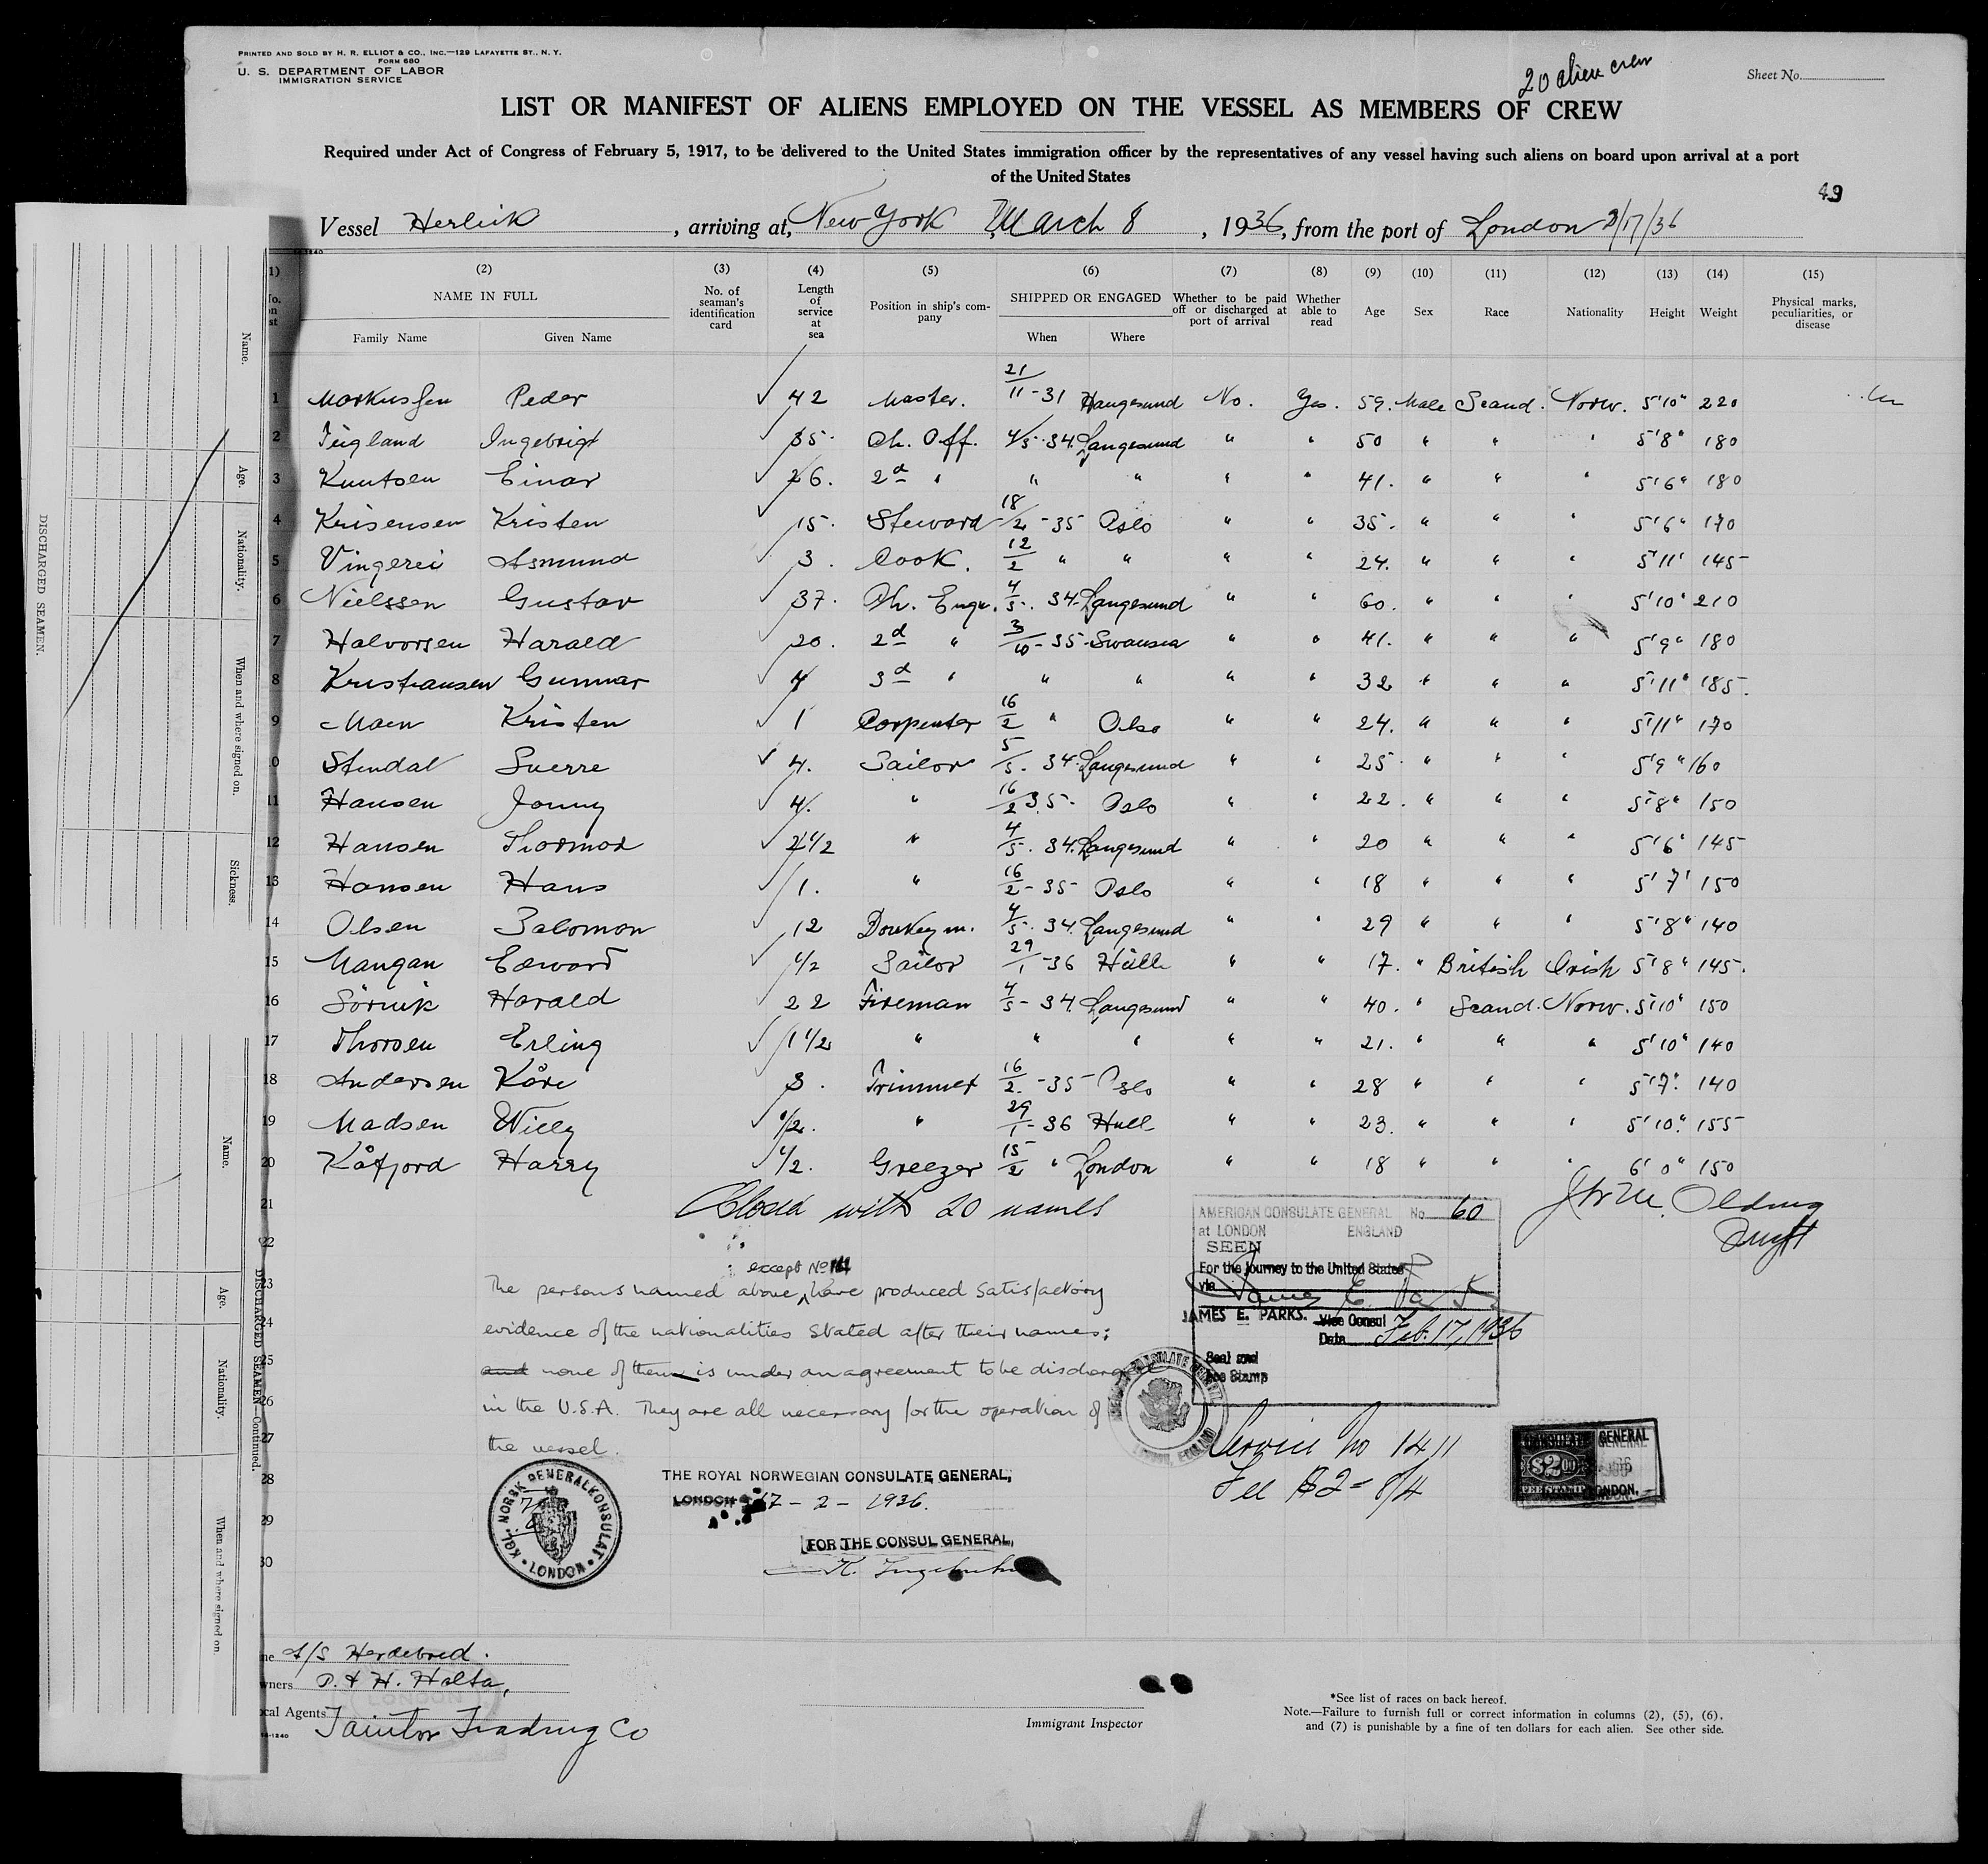 PRINTED AND SOLD BY H. R. ELLIOT & CO., INC.—129 LAFAYETTE ST., N. Y.
FORM 680
U. S. DEPARTMENT OF LABOR
IMMIGRATION SERVICE
20 alien crew
Sheet No.
LIST OR MANIFEST OF ALIENS EMPLOYED ON THE VESSEL AS MEMBERS OF CREW
Required under Act of Congress of February 5, 1917, to be delivered to the United States immigration officer by the representatives of any vessel having such aliens on board upon arrival at a port
of the United States
49
Vessel Herleik, arriving at, New York March 8, 1936, from the port of London 2/17/36
(1) (2) (3) (4) (5) (6) (7) (8) (9) (10) (11) (12) (13) (14) (15)
NAME IN FULL No. of seaman's identification card Length of service at sea Position in ship's company SHIPPED OR ENGAGED Whether to be paid off or discharged at port of arrival Whether able to read Age Sex Race Nationality Height Weight Physical marks, peculiarities, or disease
Family Name Given Name When Where
1 Markussen Peder 42 Master. 21/11-31 Haugesund No. Yes. 59. Male Scand. Norw. 5'10" 220
2 Tugland Ingebrigt 35. Ch. Off. 4/5.34. Langesund " " 50 " " " 5'8" 180
3 Knutsen Einar 26. 2d " " " " " 41. " " " 5'6" 180
4 Krisensen Kristen 15. Steward 18/2-35 Oslo " " 35. " " " 5'6" 170
5 Vingerei Asmund 3. Cook. 12/2 " " " " 24. " " " 5'11' 145
6 Nielssen Gustav 37. Ch. Engr. 4/5. 34. Langesund " " 60. " " " 5'10" 210
7 Halvorsen Harald 20. 2d " 3/10-35 Swansea " " 41. " " " 5'9" 180
8 Kristiansen Gunnar 4 3d " " " " " 32 " " " 5'11" 185.
9 Moen Kristen 1 Carpenter 16/2 " Olso " " 24. " " " 5'11" 170
10 Stendal Sverre 4. Sailor 5/5. 34. Langesund " " 25. " " " 5'9" 160
11 Hansen Jonny 4. " 16/2 35. Oslo " " 22. " " " 5'8" 150
12 Hansen Thormod 2 1/2 " 4/5. 34. Langesund " " 20 " " " 5'6" 145
13 Hansen Hans 1. " 16/2-35 Oslo " " 18 " " " 5'7' 150
14 Olsen Salomon 12 Donkeym. 4/5. 34. Langesund " " 29 " " " 5'8" 140
15 Mangan Edward 1/2 Sailor 29/1-36 Hull " " 17. " British Irish 5'8" 145.
16 Sörvik Harald 22 Fireman 4/5-34 Langesund " " 40. " Scand. Norw. 5'10" 150
17 Thorsen Erling 1 1/2 " " " " " 21. " " " 5'10" 140
18 Andersen Kåre 3. Trimmer 16/2-35 Oslo " " 28 " " " 5'7". 140
19 Madsen Willy 1/2. " 29/1-36 Hull " " 23. " " " 5'10". 155
20 Kåfjord Harry 1/2. Greezer 15/2 " London " " 18 " " " 6'0" 150
21 Closed with 20 names
22
23
24
25
26
27
28
29
30
except No
The persons named above, have produced satisfactory
evidence of the nationalities stated after their names;
and none of them is under an agreement to be discharged
in the U.S.A. They are all necessary for the operation of
the vessel.
AMERICAN CONSULATE GENERAL No 60
at LONDON ENGLAND
SEEN
For the journey to the United States
via
JAMES E. PARKS. Vice Consul
Date Feb. 17, 1936
Seal and
Fee Stamp
Service No 1411
Fee $2 = 8/4
$2.00
FEE STAMP
GENERAL
LONDON.
THE ROYAL NORWEGIAN CONSULATE GENERAL,
LONDON 17 - 2 - 1936.
FOR THE CONSUL GENERAL,
KGL. NORSK GENERALKONSULAT
LONDON
A/S Herdebred.
P. & H. Holta,
Local Agents Tainton Trading Co
Immigrant Inspector
*See list of races on back hereof.
Note.—Failure to furnish full or correct information in columns (2), (5), (6),
and (7) is punishable by a fine of ten dollars for each alien. See other side.
DISCHARGED SEAMEN.
Name.
Age.
Nationality.
When and where signed on.
Sickness.
DISCHARGED SEAMEN—Continued.
Name.
Age.
Nationality.
When and where signed on